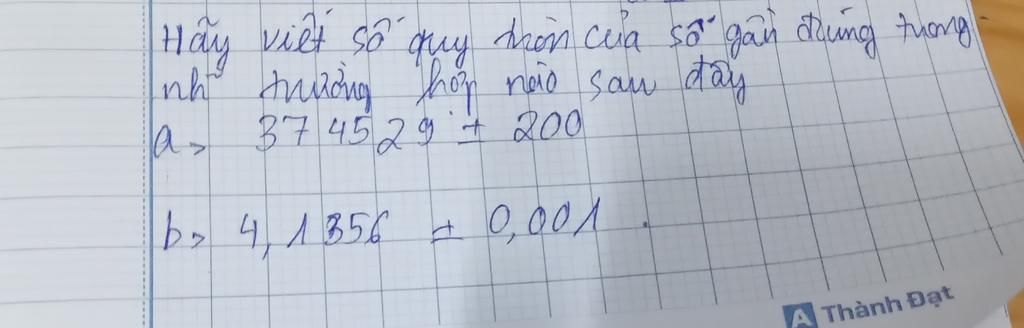 Hãy viết số quy tròn của số gần đúng trong
nh trường hợp nào sau đây
a> 374529 ± 200
b> 4,1356 ± 0,001.
A Thành Đạt